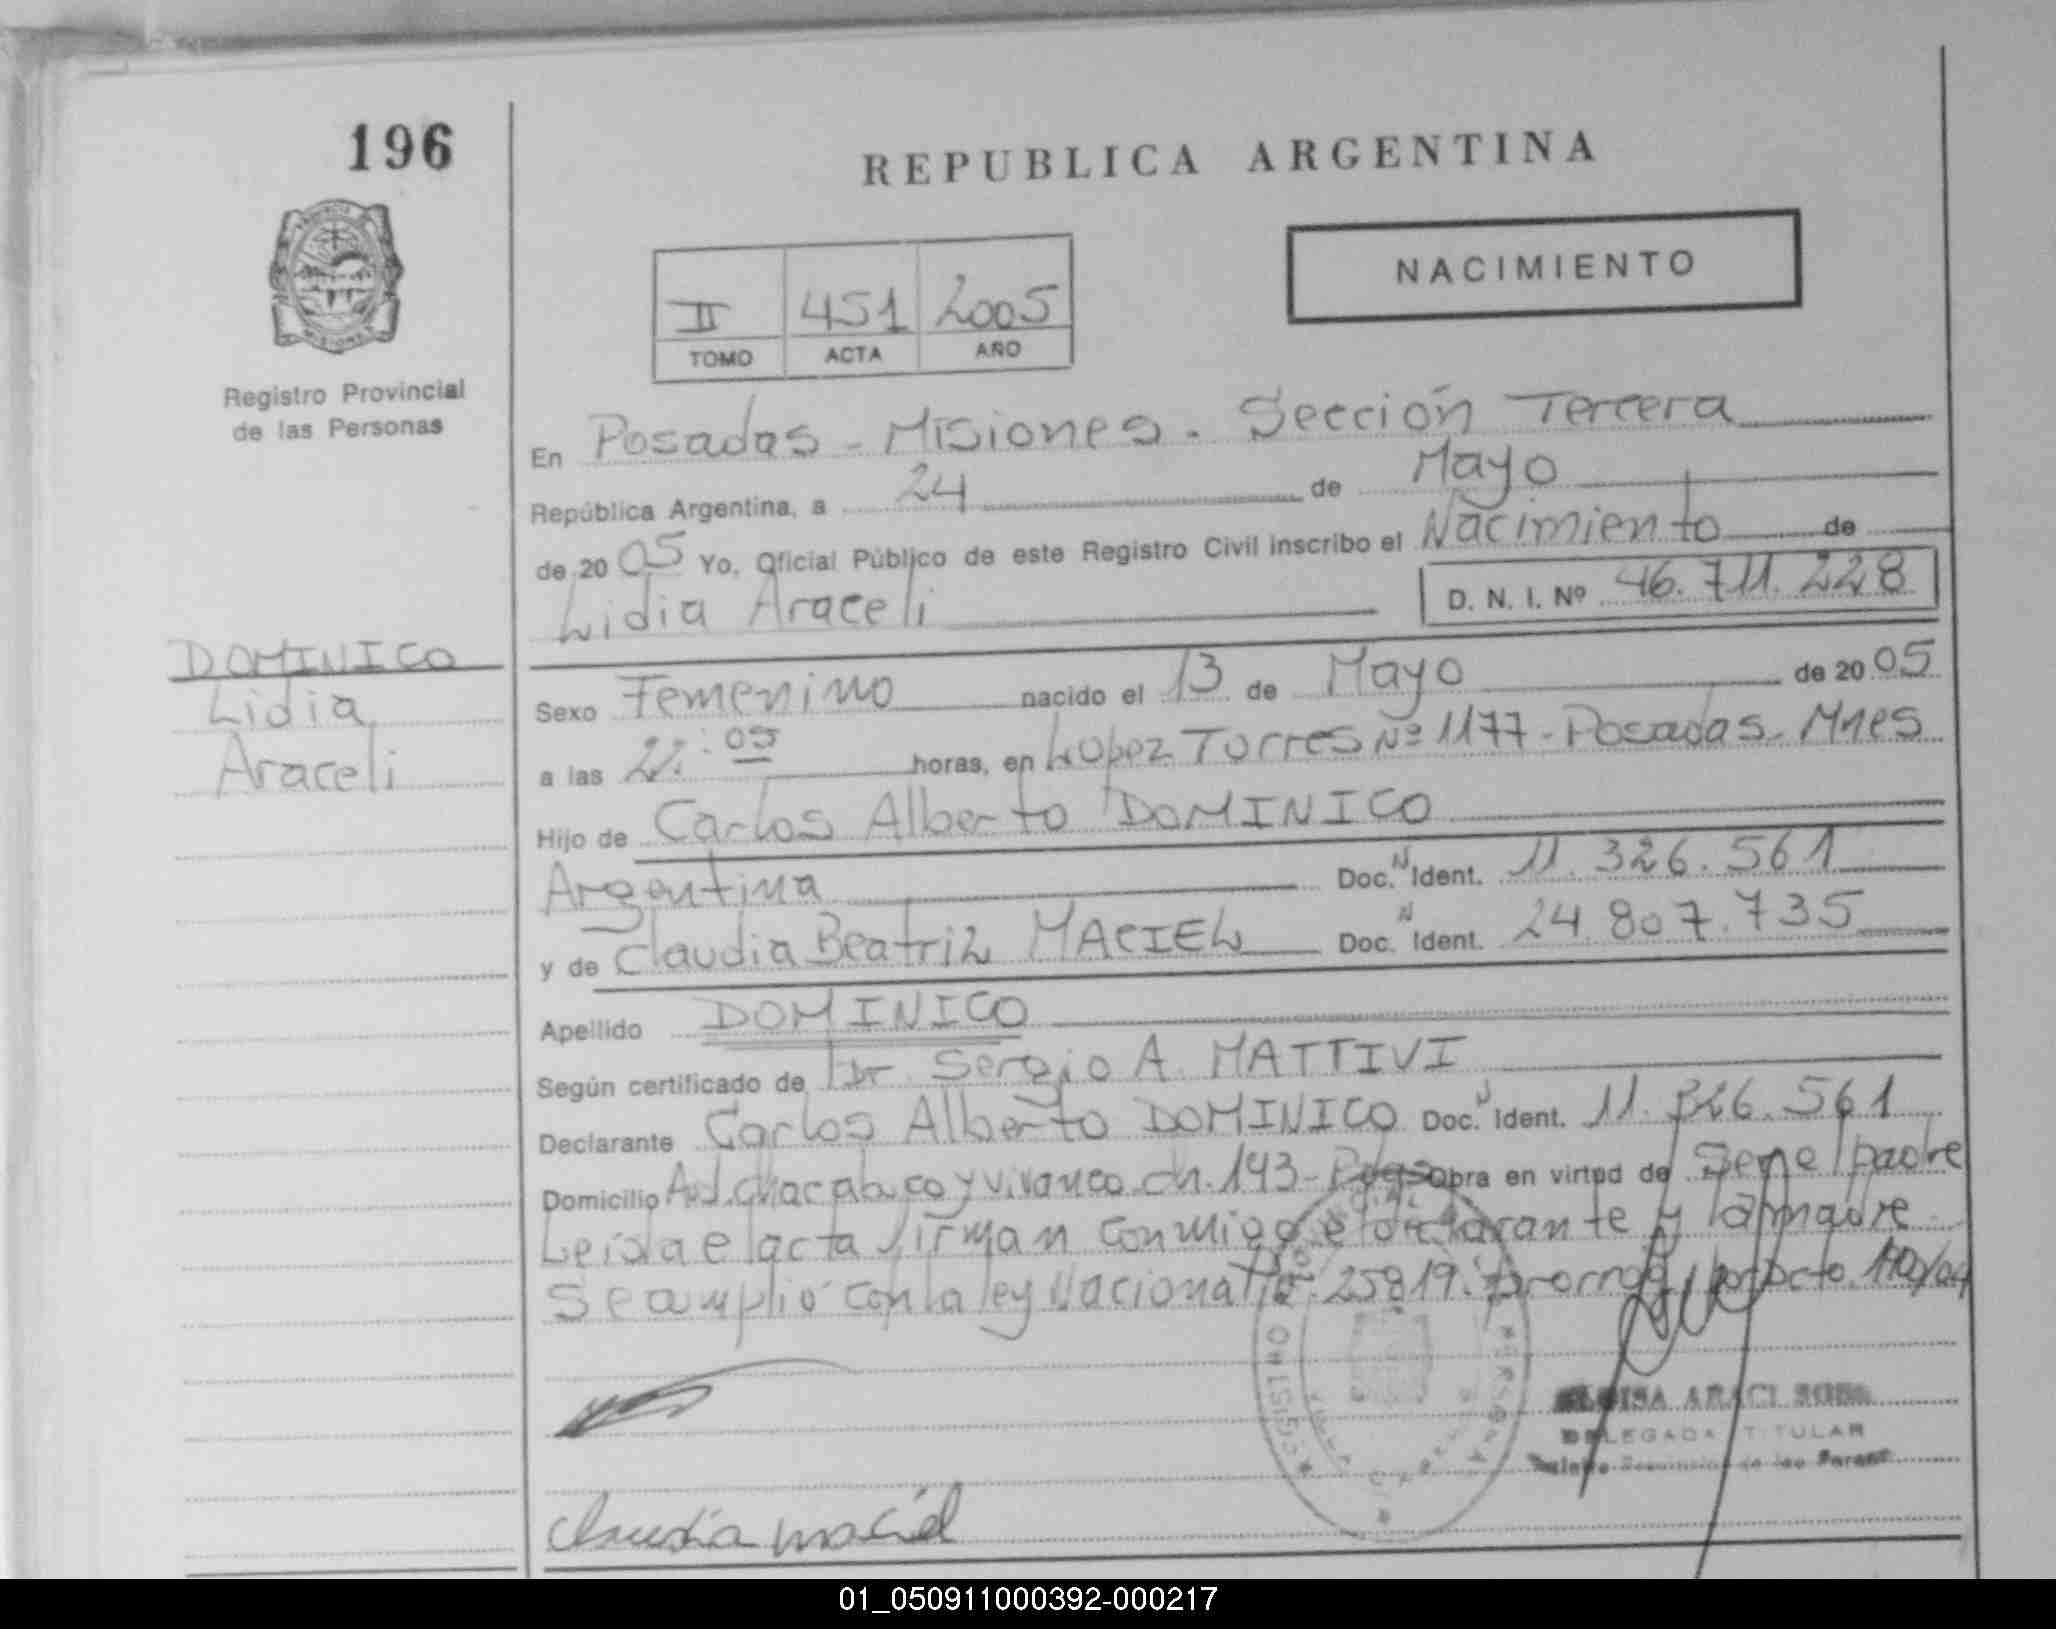 196
REPUBLICA ARGENTINA
NACIMIENTO
II 451 2005
TOMO ACTA AÑO
Registro Provincial
de las Personas
En Posadas - Misiones. Sección Tercera
República Argentina, a 24 de Mayo
de 2005 Yo, Oficial Público de este Registro Civil inscribo el Nacimiento de
Lidia Araceli D. N. I. Nº 46.711.228
DOMINICO
Lidia
Araceli
Sexo Femenino nacido el 13 de Mayo de 2005
a las 21:05 horas, en Lopez Torres Nº 1177 - Posadas - Mnes
Hijo de Carlos Alberto DOMINICO
Argentina Doc. N Ident. 11.326.561
y de Claudia Beatriz MACIEL Doc. N Ident. 24.807.735
Apellido DOMINICO
Según certificado de Dr. Sergio A. MATTIVI
Declarante Carlos Alberto DOMINICO Doc. N Ident. 11.326.561
Domicilio Av. Chacabuco y Vivanco ch. 143 - Pdas Obra en virtud de Ser el padre
Leída el acta firman conmigo el declarante y la madre
Se amplió con la ley Nacional Nº 25819. prorrog. por Dcto.
REGISTRO
DELEGADA TITULAR
Claudia Maciel
01_050911000392-000217